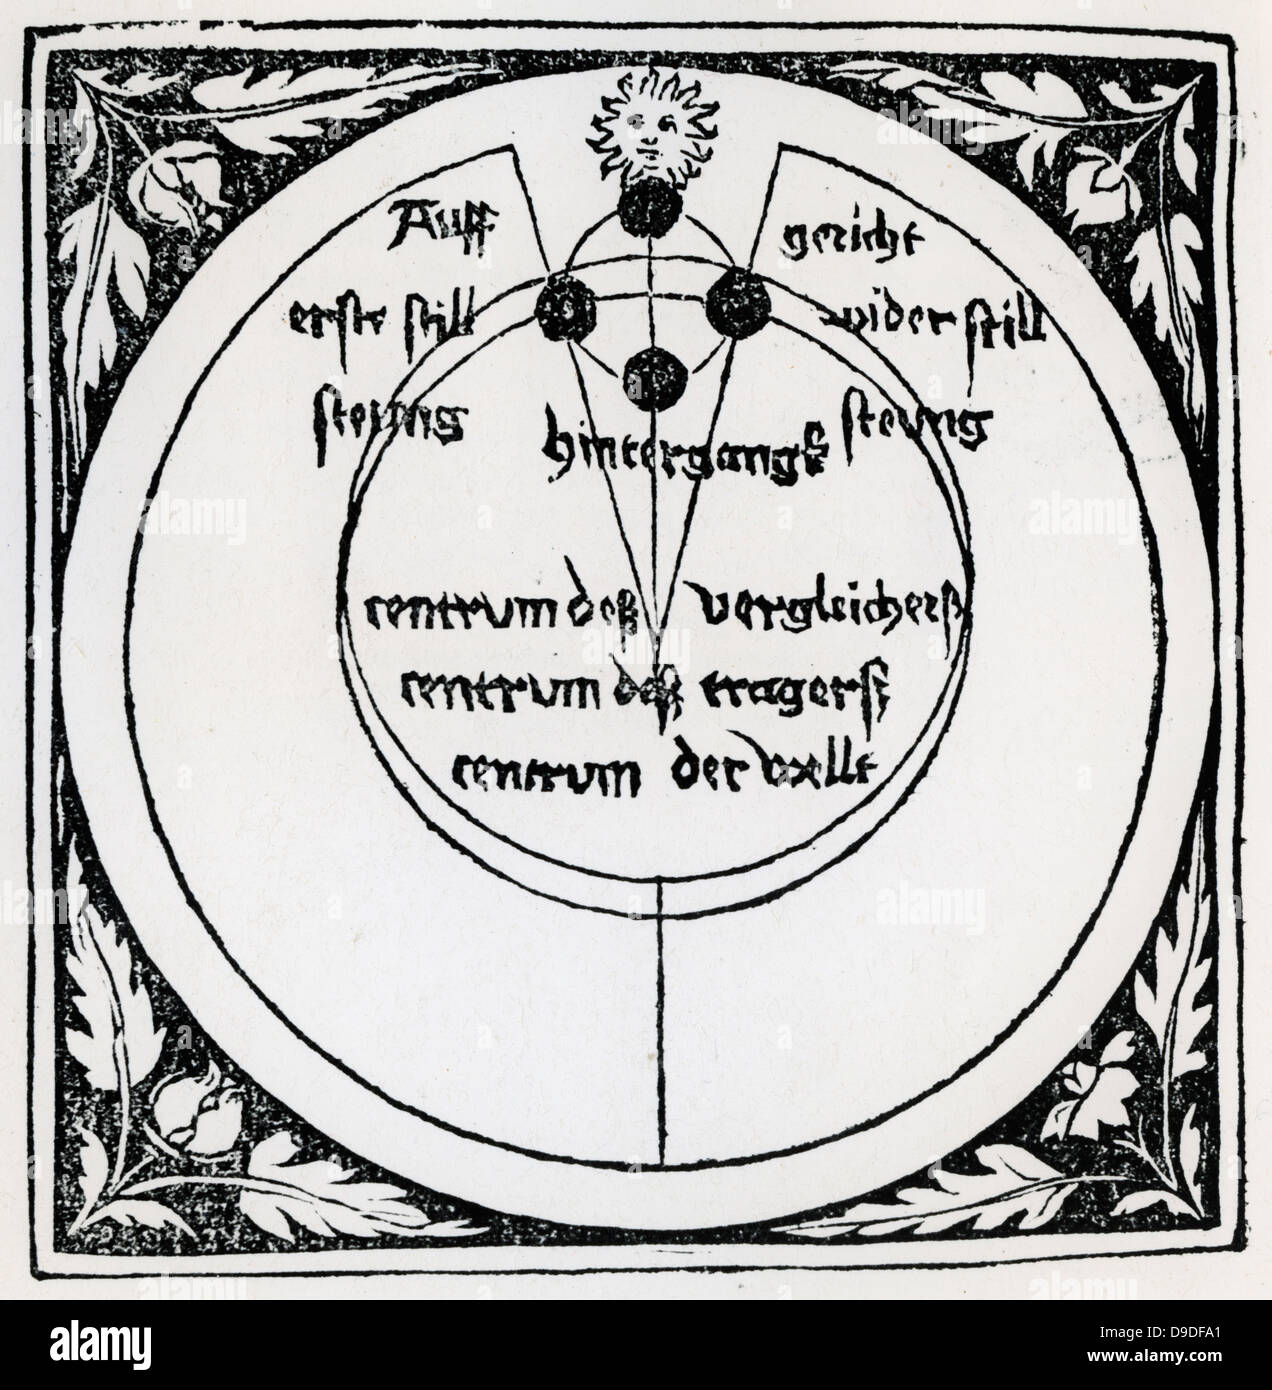 Auff gericht
erste still wider still
steung hintergangß steung
centrum deß vergleicherß
centrum deß tragerß
centrum der wellt
alamy
Image ID: D9DFA1
www.alamy.com